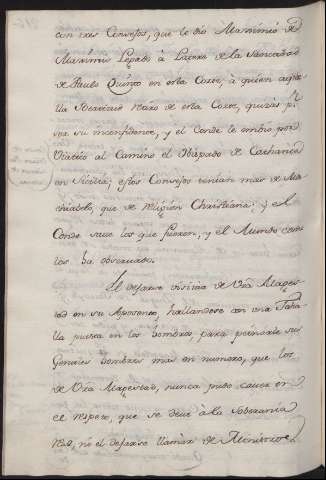 con tres Consejos, que le dio Maximino de
Maximis Legado à Latere de la Santidad
de Paulo Quinto en esta Corte, à quien
lla Novicio de esta Corte, quizás pr
ser su inconfidente, y el Conde le embio por
Viatico al Camino el Obispado de Cathania
en Sicilia; estos Consejos tenian mas de Ma
chiabelo, que de religion Christiana; y el
Conde save los que fueron, y el Mundo como
los ha observado.
El dejarse visitar de Vra Mages
tad en su Aposento, hallandose con una Toha
lla puesta en los hombros, para peinarle sus
Genoles hombres mas en numero, que los
de Vra Magestad, nunca pudo caver en
el respeto, que se deve à la Soberania
Rl, ni el dejarse llamar de Ministros